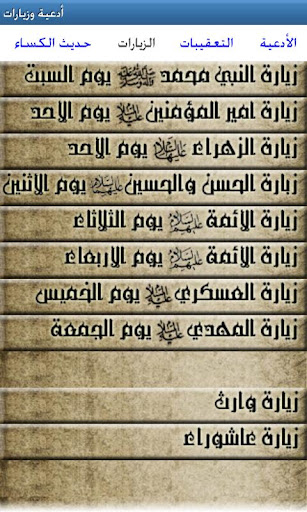 أدعية وزيارات
الأدعية التعقيبات الزيارات حديث الكساء
زيارة النبي محمد ﷺ يوم السبت
زيارة امير المؤمنين عليه السلام يوم الاحد
زيارة الزهراء عليها السلام يوم الاحد
زيارة الحسن والحسين عليهما السلام يوم الاثنين
زيارة الائمة عليهم السلام يوم الثلاثاء
زيارة الائمة عليهم السلام يوم الاربعاء
زيارة العسكري عليه السلام يوم الخميس
زيارة المهدي عليه السلام يوم الجمعة
زيارة وارث
زيارة عاشوراء